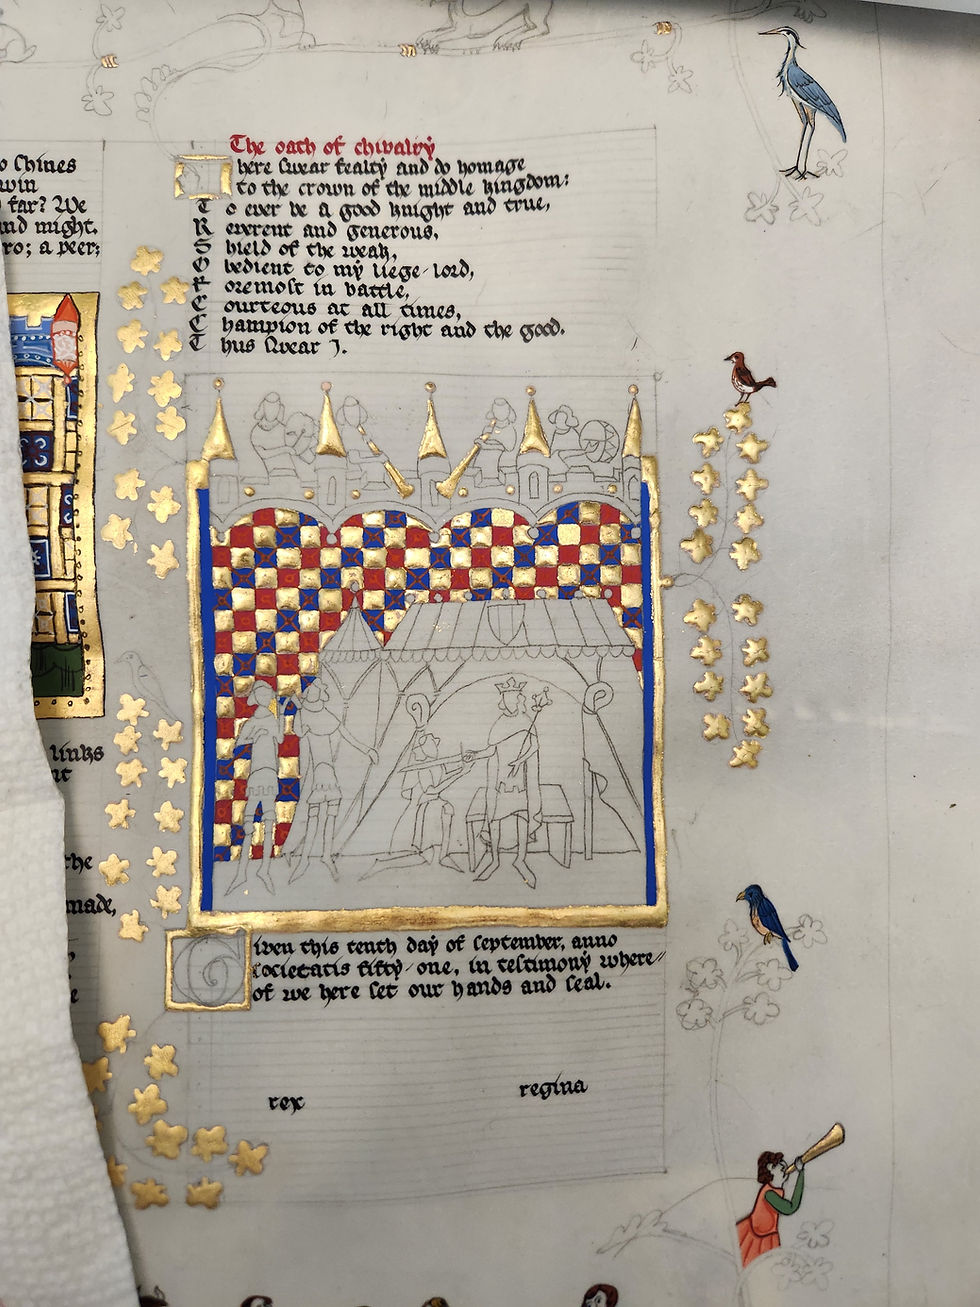 o Chines
win
far? We
nd might.
ro; a peer;
links
the
made,
The oath of chivalry
here swear fealty and do homage
to the crown of the middle kingdom:
To ever be a good knight and true,
Reverent and generous,
Shield of the weak,
Obedient to my liege-lord,
Foremost in battle,
Courteous at all times,
Champion of the right and the good.
Thus swear I.
Given this tenth day of september, anno
societatis fifty-one, in testimony where//
of we here set our hands and seal.
rex
regina